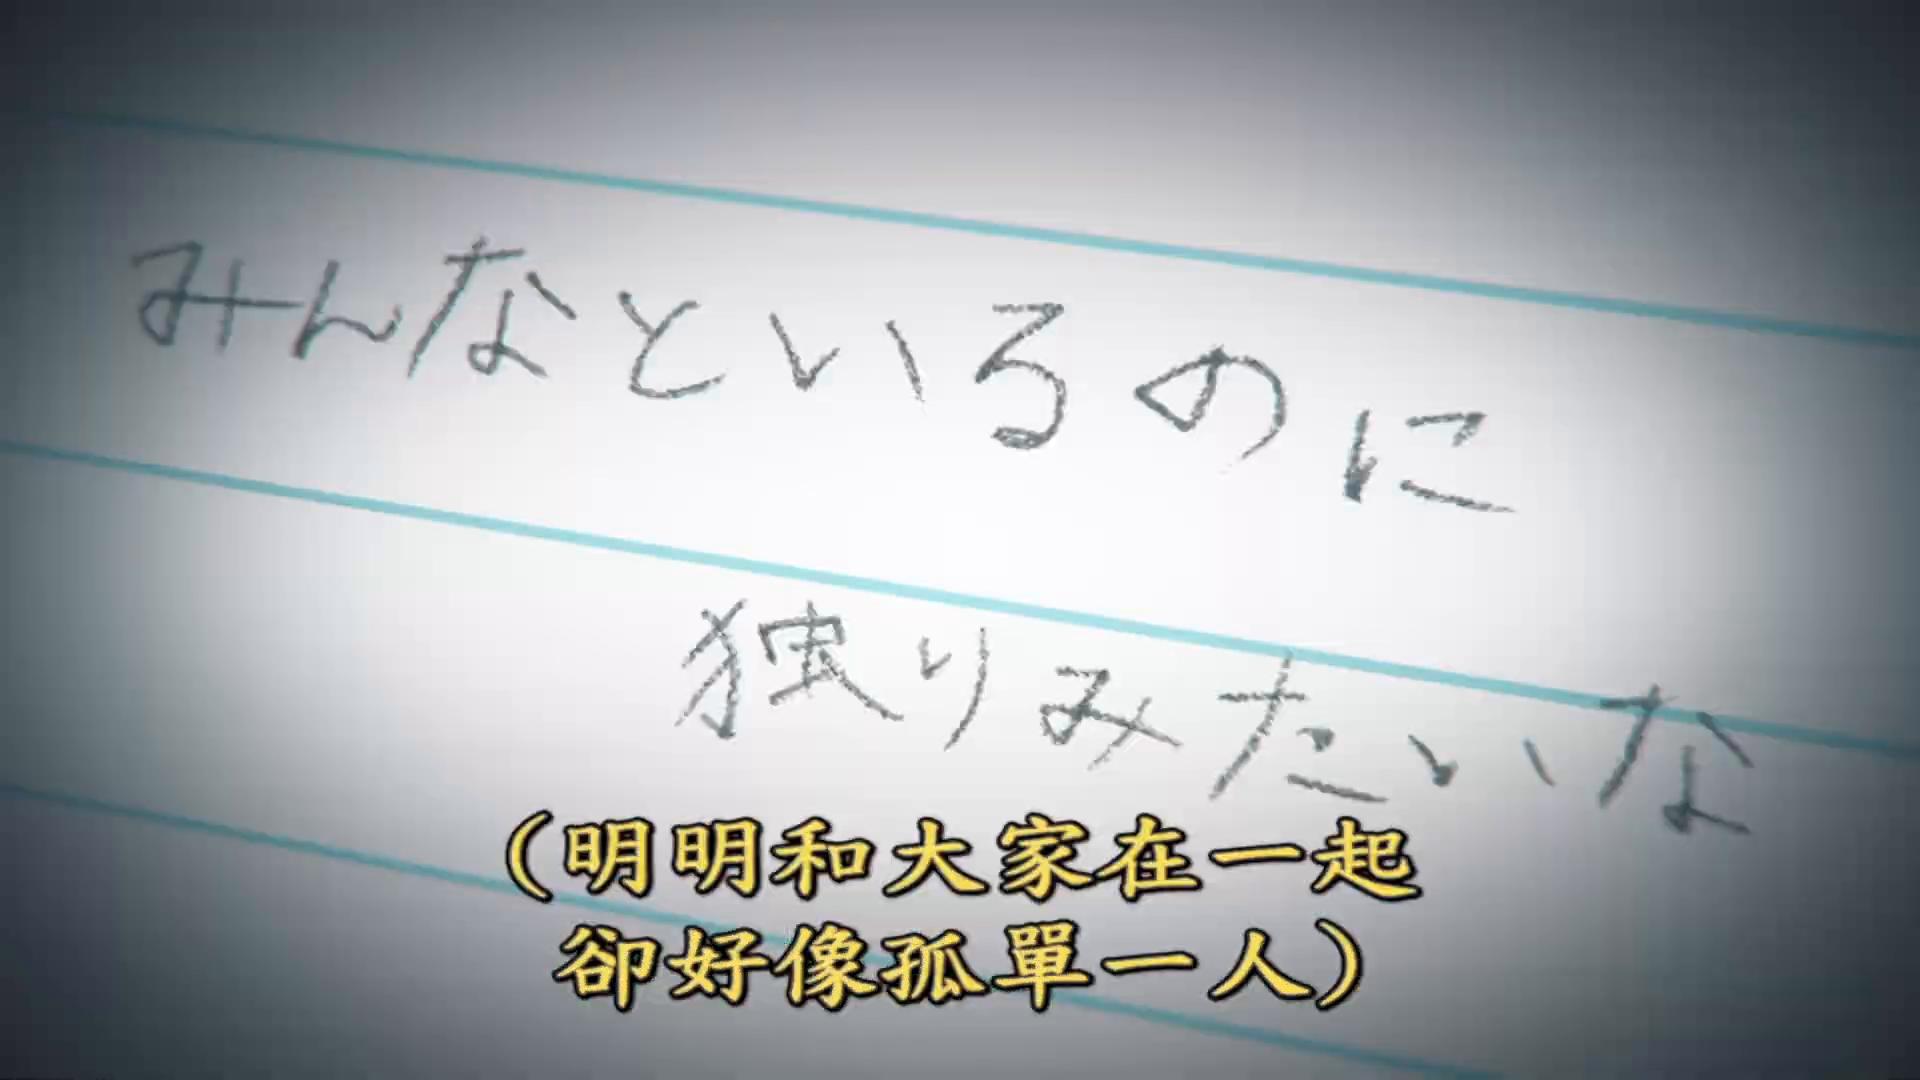 みんなといるのに
独りみたいな
（明明和大家在一起
卻好像孤單一人）